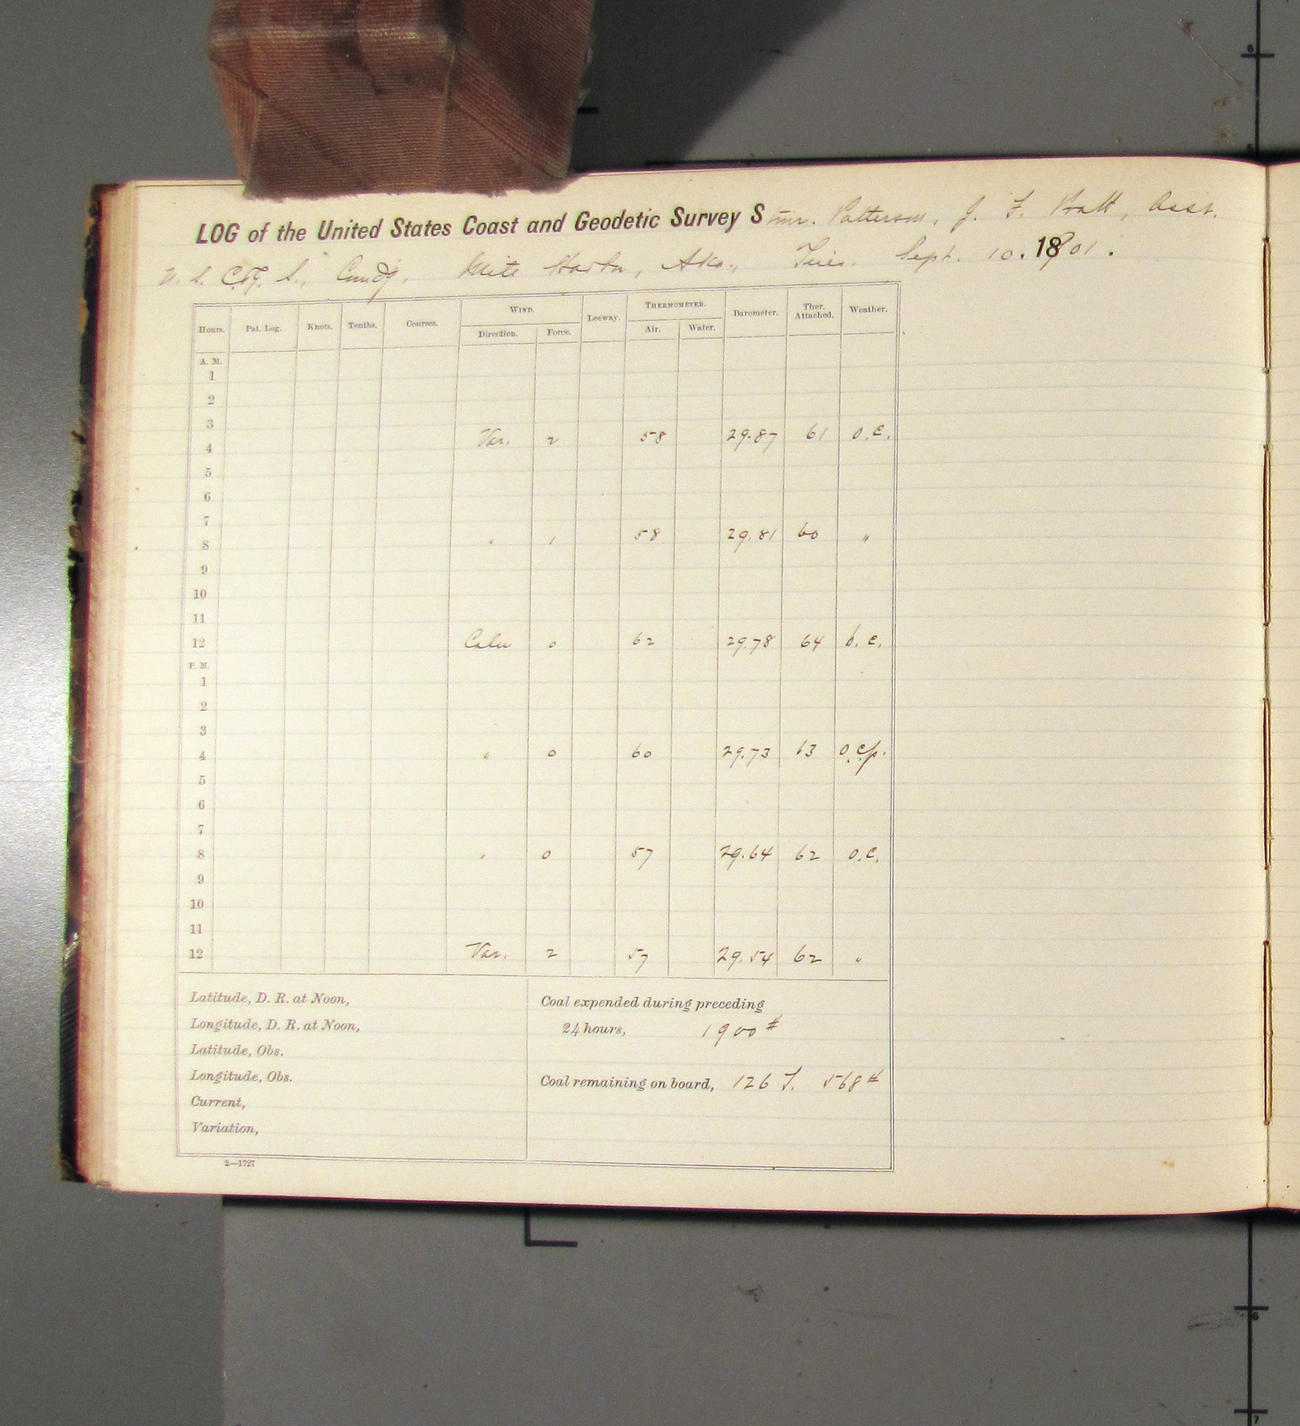 LOG of the United States Coast and Geodetic Survey Stmr. Patterson, J. F. Pratt, Asst.
U. S. C. & G. S., Comdg. Mite Harbor, Aka., Tues. Sept. 10. 1901.
Hours. Pat. Log. Knots. Tenths. Courses. WIND. Leeway. THERMOMETER. Barometer. Ther. Attached. Weather.
Direction. Force. Air. Water.
A. M.
1
2
3
4 Var. 2 58 29.87 61 o.c.
5
6
7
8 " 1 58 29.81 60 "
9
10
11
12 Calm 0 62 29.78 64 b.c.
P. M.
1
2
3
4 " 0 60 29.73 63 o.c.p.
5
6
7
8 " 0 57 29.64 62 o.c.
9
10
11
12 Var. 2 57 29.54 62 "
Latitude, D. R. at Noon,
Longitude, D. R. at Noon,
Latitude, Obs.
Longitude, Obs.
Current,
Variation,
Coal expended during preceding
24 hours, 1900 #
Coal remaining on board, 126 T. 568 #
2—1727
6
5
6
7